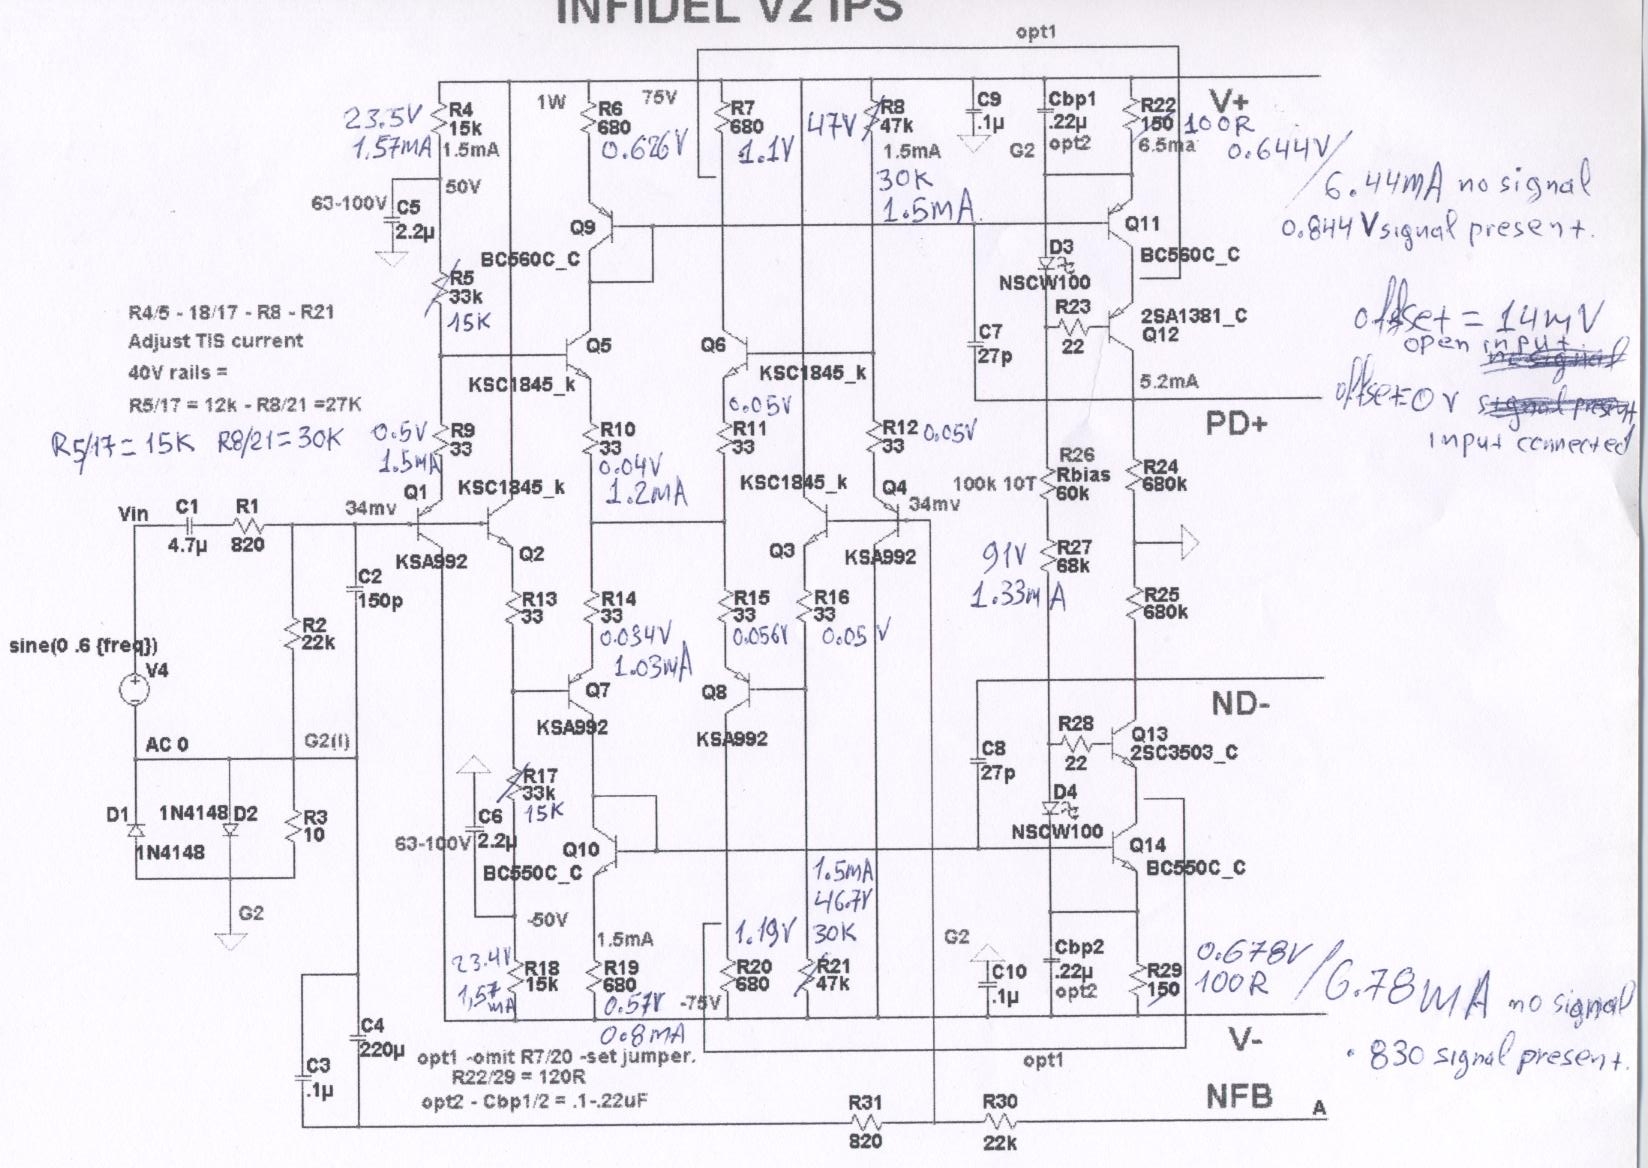 INFIDEL V2 IPS
opt1
23.5V
1.57mA
R4
15k
1.5mA
50V
63-100V
C5
2.2µ
1W
R6
680
0.626V
75V
R7
680
1.1V
47V
R8
47k
1.5mA
30K
1.5mA
C9
.1µ
G2
Cbp1
.22µ
opt2
R22
150
100R
6.5ma
V+
0.644V/
6.44mA no signal
0.844V signal present.
Q9
BC560C_C
Q11
BC560C_C
D3
NSCW100
R5
33k
15K
R4/5 - 18/17 - R8 - R21
Adjust TIS current
40V rails =
R5/17 = 12k - R8/21 =27K
R5/17 = 15K R8/21 = 30K
Q5
KSC1845_k
Q6
KSC1845_k
C7
27p
R23
22
2SA1381_C
Q12
5.2mA
PD+
offset = 14mV
open input.
no signal
offset=0V signal present
input connected
0.5V
1.5mA
R9
33
R10
33
0.04V
1.2mA
0.05V
R11
33
R12
33
0.05V
R26
Rbias
60k
100k 10T
R24
680k
Vin
C1
4.7µ
R1
820
34mv
Q1
KSA992
KSC1845_k
Q2
KSC1845_k
Q3
Q4
34mv
KSA992
91V
1.33mA
R27
68k
R25
680k
C2
150p
R2
22k
R13
33
R14
33
0.034V
1.03mA
R15
33
0.056V
R16
33
0.05V
sine(0 .6 {freq})
V4
AC 0
G2(I)
Q7
KSA992
Q8
KSA992
ND-
C8
27p
R28
22
Q13
2SC3503_C
D4
NSCW100
Q14
BC550C_C
D1
1N4148
1N4148
D2
R3
10
G2
R17
33k
15K
C6
2.2µ
63-100V
-50V
Q10
BC550C_C
1.5mA
46.7V
30K
R21
47k
23.4V
1,57
mA
R18
15k
1.5mA
R19
680
0.57V
0.8mA
-75V
1.19V
R20
680
G2
C10
.1µ
Cbp2
.22µ
opt2
R29
150
0.678V
100R
/6.78mA no signal
.830 signal present.
V-
opt1
C3
.1µ
C4
220µ
opt1 -omit R7/20 -set jumper.
R22/29 = 120R
opt2 - Cbp1/2 = .1-.22uF
R31
820
R30
22k
NFB
A